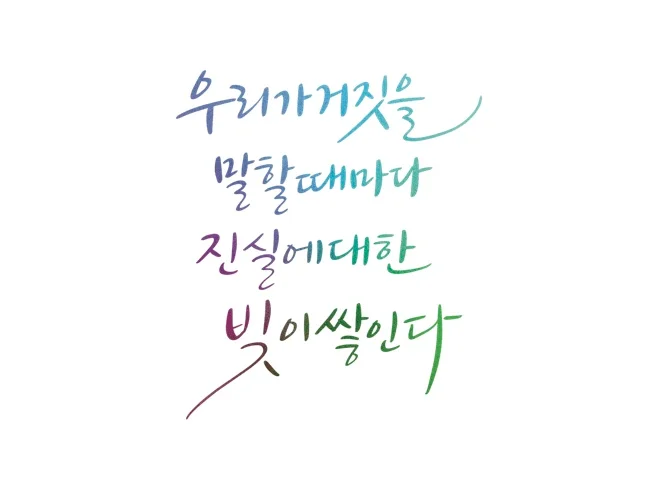 우리가 거짓을
말할 때마다
진실에 대한
빚이 쌓인다